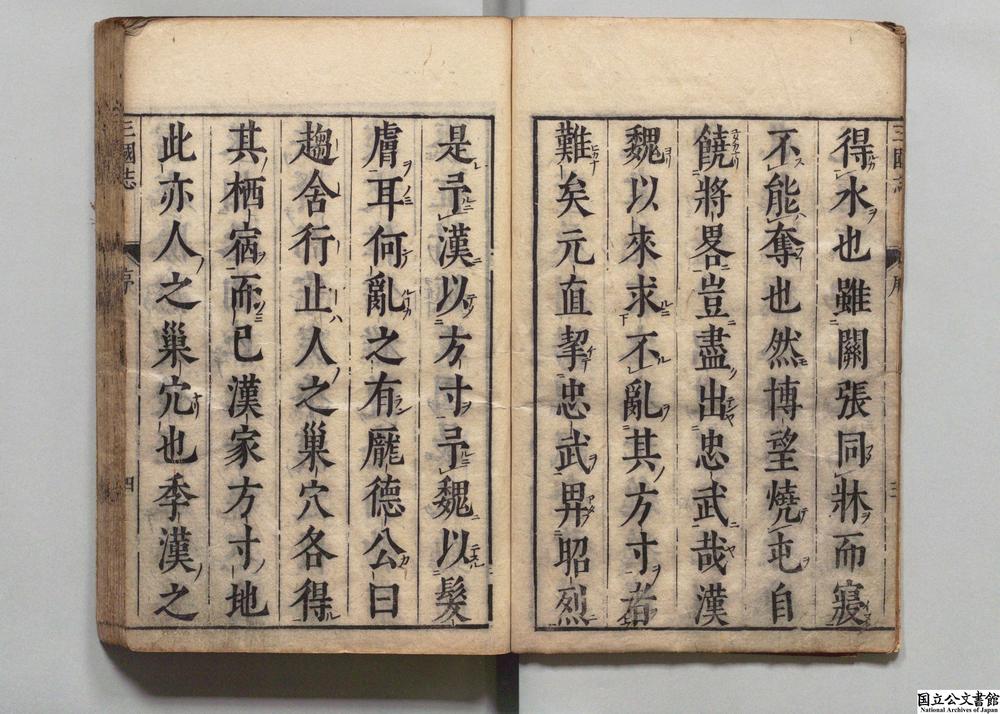 得水也雖關張同牀而寢
不能奪也然博望燒屯自
饒將畧豈盡出忠武哉漢
魏以來求不亂其方寸者
難矣元直挈忠武畀昭烈
三國志
序
三
是予漢以方寸予魏以髮
膚耳何亂之有龐德公曰
趨舍行止人之巢穴各得
其栖宿而已漢家方寸地
此亦人之巢穴也季漢之
三國志
序
四
国立公文書館
National Archives of Japan